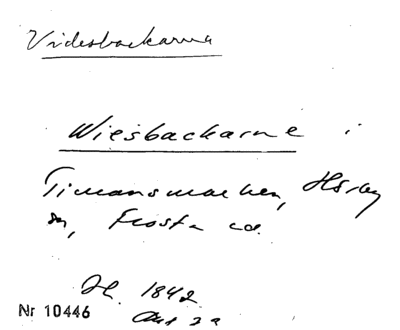 Videsbackarna
Wiesbackarne i
Timansmarken, Hörby
sn, Frosta hd.
Sk. 1842
Nr 10446